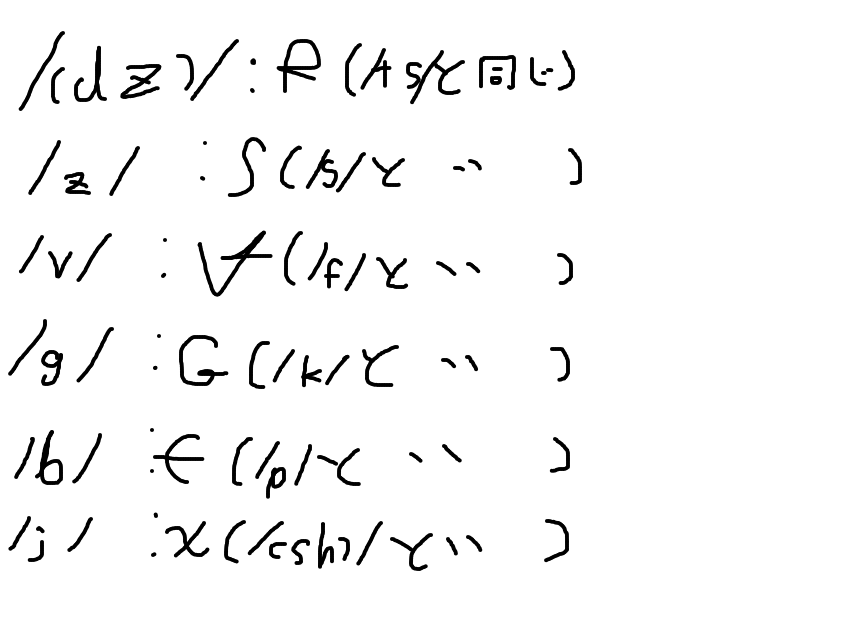 /(dz)/:R(/ts/と同じ)
/z/:ʃ(/s/と〃)
/v/:(/f/と〃)
/g/:G(/k/と〃)
/b/:∈(/p/と〃)
/j/:x(/(sh)/と〃)